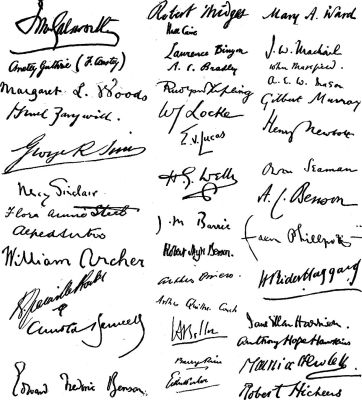 J. Galsworthy
Anstey Guthrie (F. Anstey)
Margaret L. Woods
Israel Zangwill.
George R Sims
May Sinclair.
Flora Annie Steel
Alfred Sutro
William Archer
H. Granville Barker
Arnold Bennett
Edward Frederic Benson.
Robert Bridges
Hall Caine
Laurence Binyon
A. C. Bradley
Rudyard Kipling
W J Locke
E. V. Lucas
H. G. Wells
J. M. Barrie
Robert Hugh Benson.
Arthur Morrison
Arthur Quiller Couch
H Belloc
Barry Pain
Mary A. Ward
J. W. Mackail
John Masefield.
A. E. W. Mason
Gilbert Murray
Henry Newbolt
Owen Seaman
A. C. Benson
Eden Phillpotts
H Rider Haggard
Jane Ellen Harrison
Anthony Hope Hawkins
Maurice Hewlett
Robert Hichens